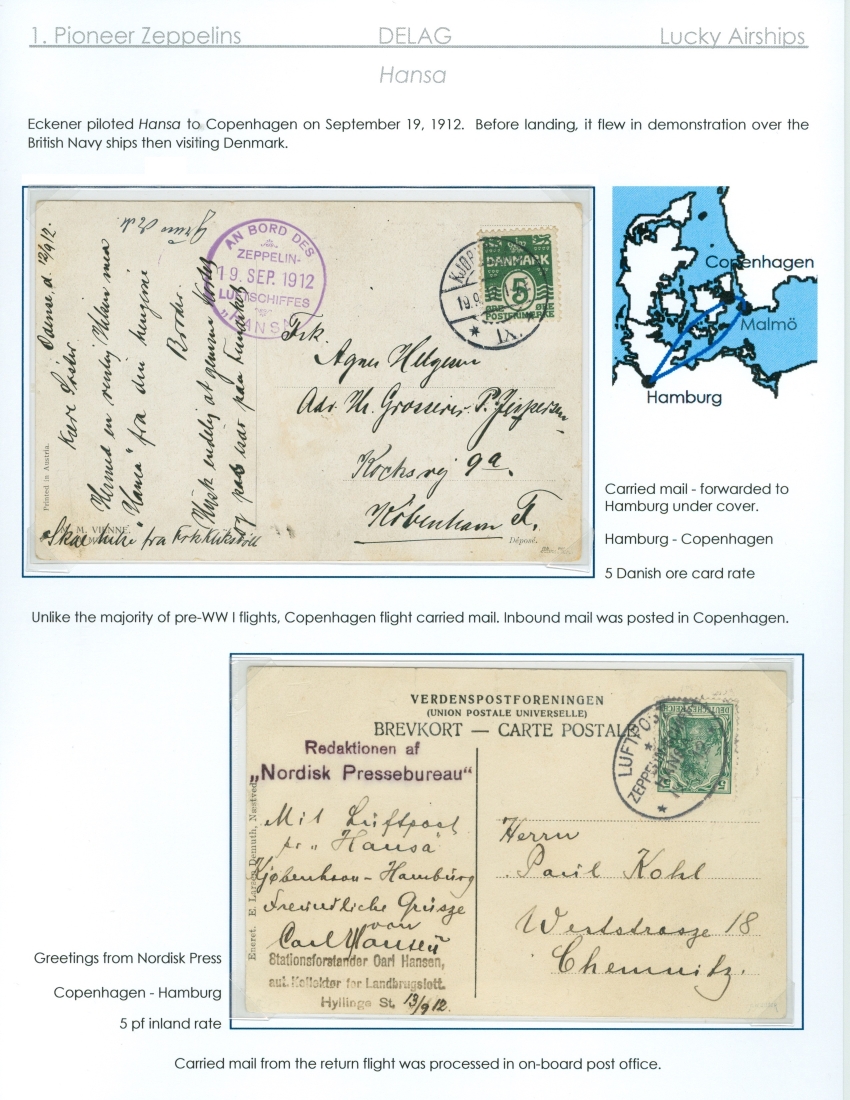 1. Pioneer Zeppelins DELAG Lucky Airships
Hansa
Eckener piloted Hansa to Copenhagen on September 19, 1912. Before landing, it flew in demonstration over the
British Navy ships then visiting Denmark.
Odense d. 12/9 12.
Kære Søster
Hermed en venlig Hilsen med
"Hansa" fra din hengivne
Broder
Husk endelig at gemme Kortet
og pas især paa Frimærket
AN BORD DES
ZEPPELIN-
19. SEP. 1912
LUFTSCHIFFES
"HANSA"
KJØB
19.9
IX.
DANMARK
5
ØRE ØRE
POSTFRIMÆRKE
Frk.
Agnes Helgesen
Adr. Hr. Grosserer P. Jespersen
Kochsvej 9a.
København F.
Printed in Austria.
M. M. VIENNE.
Skal hilse fra Frk
Déposé.
Copenhagen
Malmö
Hamburg
Carried mail - forwarded to
Hamburg under cover.
Hamburg - Copenhagen
5 Danish ore card rate
Unlike the majority of pre-WW I flights, Copenhagen flight carried mail. Inbound mail was posted in Copenhagen.
VERDENSPOSTFORENINGEN
(UNION POSTALE UNIVERSELLE)
BREVKORT — CARTE POSTALE
Redaktionen af
„Nordisk Pressebureau"
Mit Luftpost
pr "Hansa"
Kjøbenhavn - Hamburg
Freundliche Grüsze
von
Carl Hansen
Stationsforstander Carl Hansen,
aut. Kollektør for Landbrugslott.
Hyllinge St. 13/9 12.
Eneret. E. Larsen Demuth, Næstved.
LUFTPOST
ZEPPELIN
HANSA
DEUTSCHES REICH
5
Herrn
Paul Kohl
Wertstrasze 18
Chemnitz.
Greetings from Nordisk Press
Copenhagen - Hamburg
5 pf inland rate
Carried mail from the return flight was processed in on-board post office.